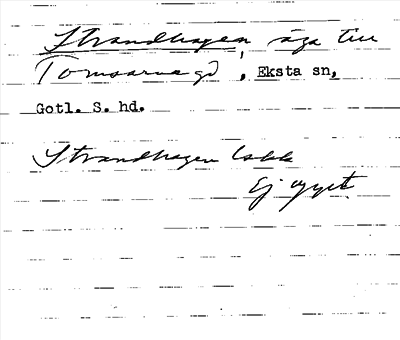 Strandhagen, äga till
Tomsarve gd, Eksta sn,
Gotl. S. hd.
Strandhagen
Ej